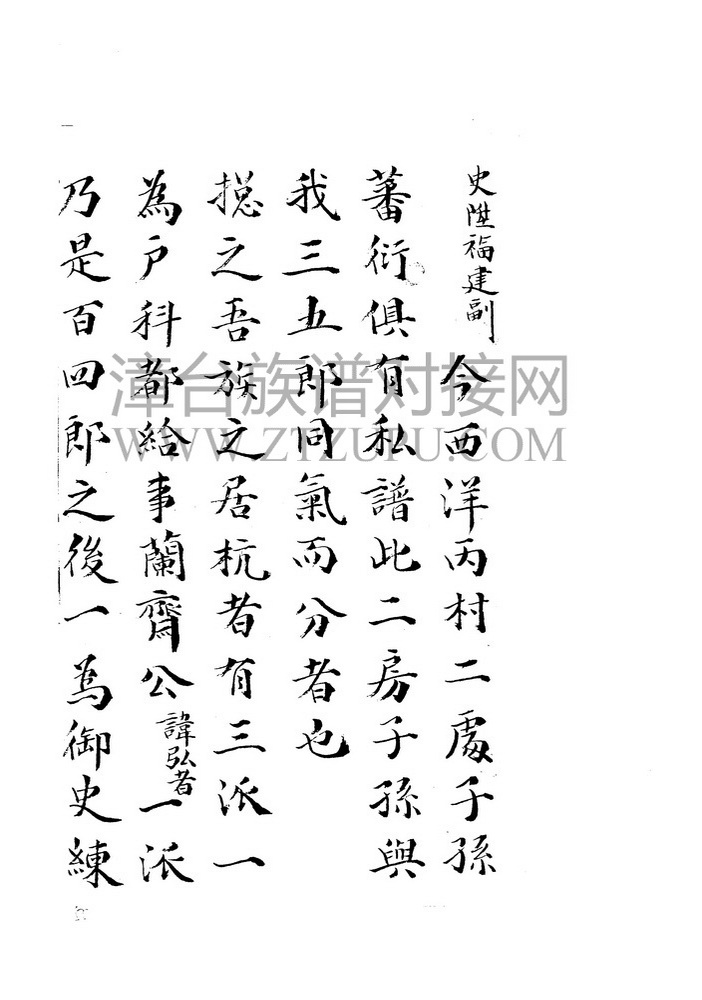 史陞福建副今西洋丙村二處子孫
蕃衍俱有私譜此二房子孫與
我三五郎同氣而分者也
揔之吾族之居杭者有三派一
為戶科都給事蘭齋公諱弘者一派
乃是百四郎之後一為御史練
漳台族谱对接网
WWW.ZTZUPU.COM